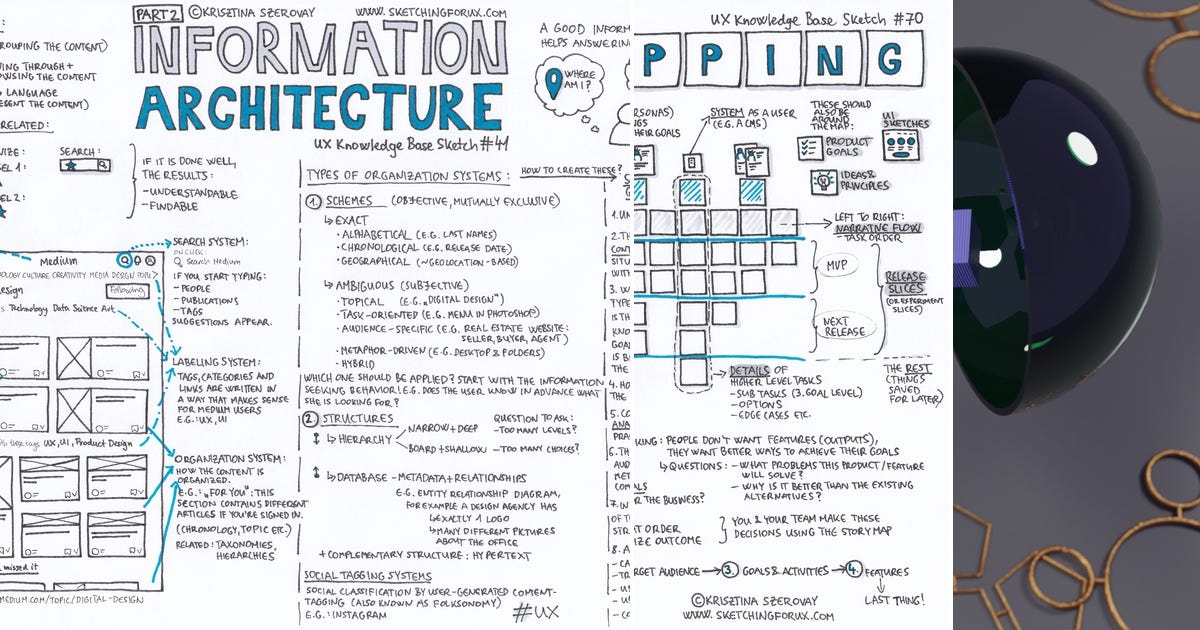 PART 2 ©KRISZTINA SZEROVAY WWW.SKETCHINGFORUX.COM
INFORMATION
ARCHITECTURE
UX Knowledge Base Sketch #41
ROUPING THE CONTENT)
VING THROUGH +
WSING THE CONTENT
LANGUAGE
ESENT THE CONTENT)
RELATED:
SEARCH:
IF IT IS DONE WELL,
THE RESULTS:
-UNDERSTANDABLE
-FINDABLE
Medium
OLOGY CULTURE CREATIVITY MEDIA DESIGN POPU >
esign
Following
Technology Data Science Art
these tags UX, UI, Product Design
missed it
MEDIUM.COM/TOPIC/DIGITAL-DESIGN
SEARCH SYSTEM:
ON CLICK:
Search Medium
IF YOU START TYPING:
-PEOPLE
-PUBLICATIONS
-TAGS
SUGGESTIONS APPEAR.
LABELING SYSTEM:
TAGS, CATEGORIES AND
LINKS ARE WRITTEN IN
A WAY THAT MAKES SENSE
FOR MEDIUM USERS
E.G.: UX, UI
ORGANIZATION SYSTEM:
HOW THE CONTENT IS
ORGANIZED.
E.G.: „FOR YOU": THIS
SECTION CONTAINS DIFFERENT
ARTICLES IF YOU'RE SIGNED IN.
(CHRONOLOGY, TOPIC ETC.)
RELATED: TAXONOMIES,
HIERARCHIES
TYPES OF ORGANIZATION SYSTEMS: HOW TO CREATE THESE?
1. SCHEMES (OBJECTIVE, MUTUALLY EXCLUSIVE)
EXACT
· ALPHABETICAL (E.G. LAST NAMES)
· CHRONOLOGICAL (E.G. RELEASE DATE)
· GEOGRAPHICAL (~GEOLOCATION-BASED)
AMBIGUOUS (SUBJECTIVE)
· TOPICAL (E.G. „DIGITAL DESIGN")
· TASK-ORIENTED (E.G. MENU IN PHOTOSHOP)
· AUDIENCE-SPECIFIC (E.G. REAL ESTATE WEBSITE:
SELLER, BUYER, AGENT)
· METAPHOR-DRIVEN (E.G. DESKTOP & FOLDERS)
· HYBRID
WHICH ONE SHOULD BE APPLIED? START WITH THE INFORMATION
SEEKING BEHAVIOR! E.G. DOES THE USER KNOW IN ADVANCE WHAT
SHE IS LOOKING FOR?
2. STRUCTURES QUESTION TO ASK:
HIERARCHY
NARROW + DEEP -TOO MANY LEVELS?
BOARD + SHALLOW -TOO MANY CHOICES?
DATABASE - METADATA + RELATIONSHIPS
E.G. ENTITY RELATIONSHIP DIAGRAM,
FOR EXAMPLE A DESIGN AGENCY HAS
EXACTLY 1 LOGO
MANY DIFFERENT PICTURES
ABOUT THE OFFICE
+ COMPLEMENTARY STRUCTURE: HYPERTEXT
SOCIAL TAGGING SYSTEMS
SOCIAL CLASSIFICATION BY USER-GENERATED CONTENT-
TAGGING (ALSO KNOWN AS FOLKSONOMY)
E.G.: INSTAGRAM
#UX
A GOOD INFORM
HELPS ANSWERIN
WHERE
AM I?
UX Knowledge Base Sketch #70
PPING
SYSTEM AS A USER
(E.G. A CMS)
RSONAS)
HEIR GOALS
THESE SHOULD
ALSO BE
AROUND
THE MAP:
PRODUCT
GOALS
UI
SKETCHES
IDEAS &
PRINCIPLES
LEFT TO RIGHT:
NARRATIVE FLOW
~TASK ORDER
MVP
NEXT
RELEASE
RELEASE
SLICES
(OR EXPERIMENT
SLICES)
THE REST
(THINGS
SAVED
FOR LATER)
DETAILS OF
HIGHER LEVEL TASKS
-SUB TASKS (3. GOAL LEVEL)
-OPTIONS
-EDGE CASES ETC.
KING: PEOPLE DON'T WANT FEATURES (OUTPUTS),
THEY WANT BETTER WAYS TO ACHIEVE THEIR GOALS
QUESTIONS: -WHAT PROBLEMS THIS PRODUCT/FEATURE
WILL SOLVE?
-WHY IS IT BETTER THAN THE EXISTING
ALTERNATIVES?
R THE BUSINESS?
T ORDER
IZE OUTCOME
YOU & YOUR TEAM MAKE THESE
DECISIONS USING THE STORY MAP
RGET AUDIENCE → 3. GOALS & ACTIVITIES → 4. FEATURES
LAST THING!
©KRISZTINA SZEROVAY
WWW.SKETCHINGFORUX.COM